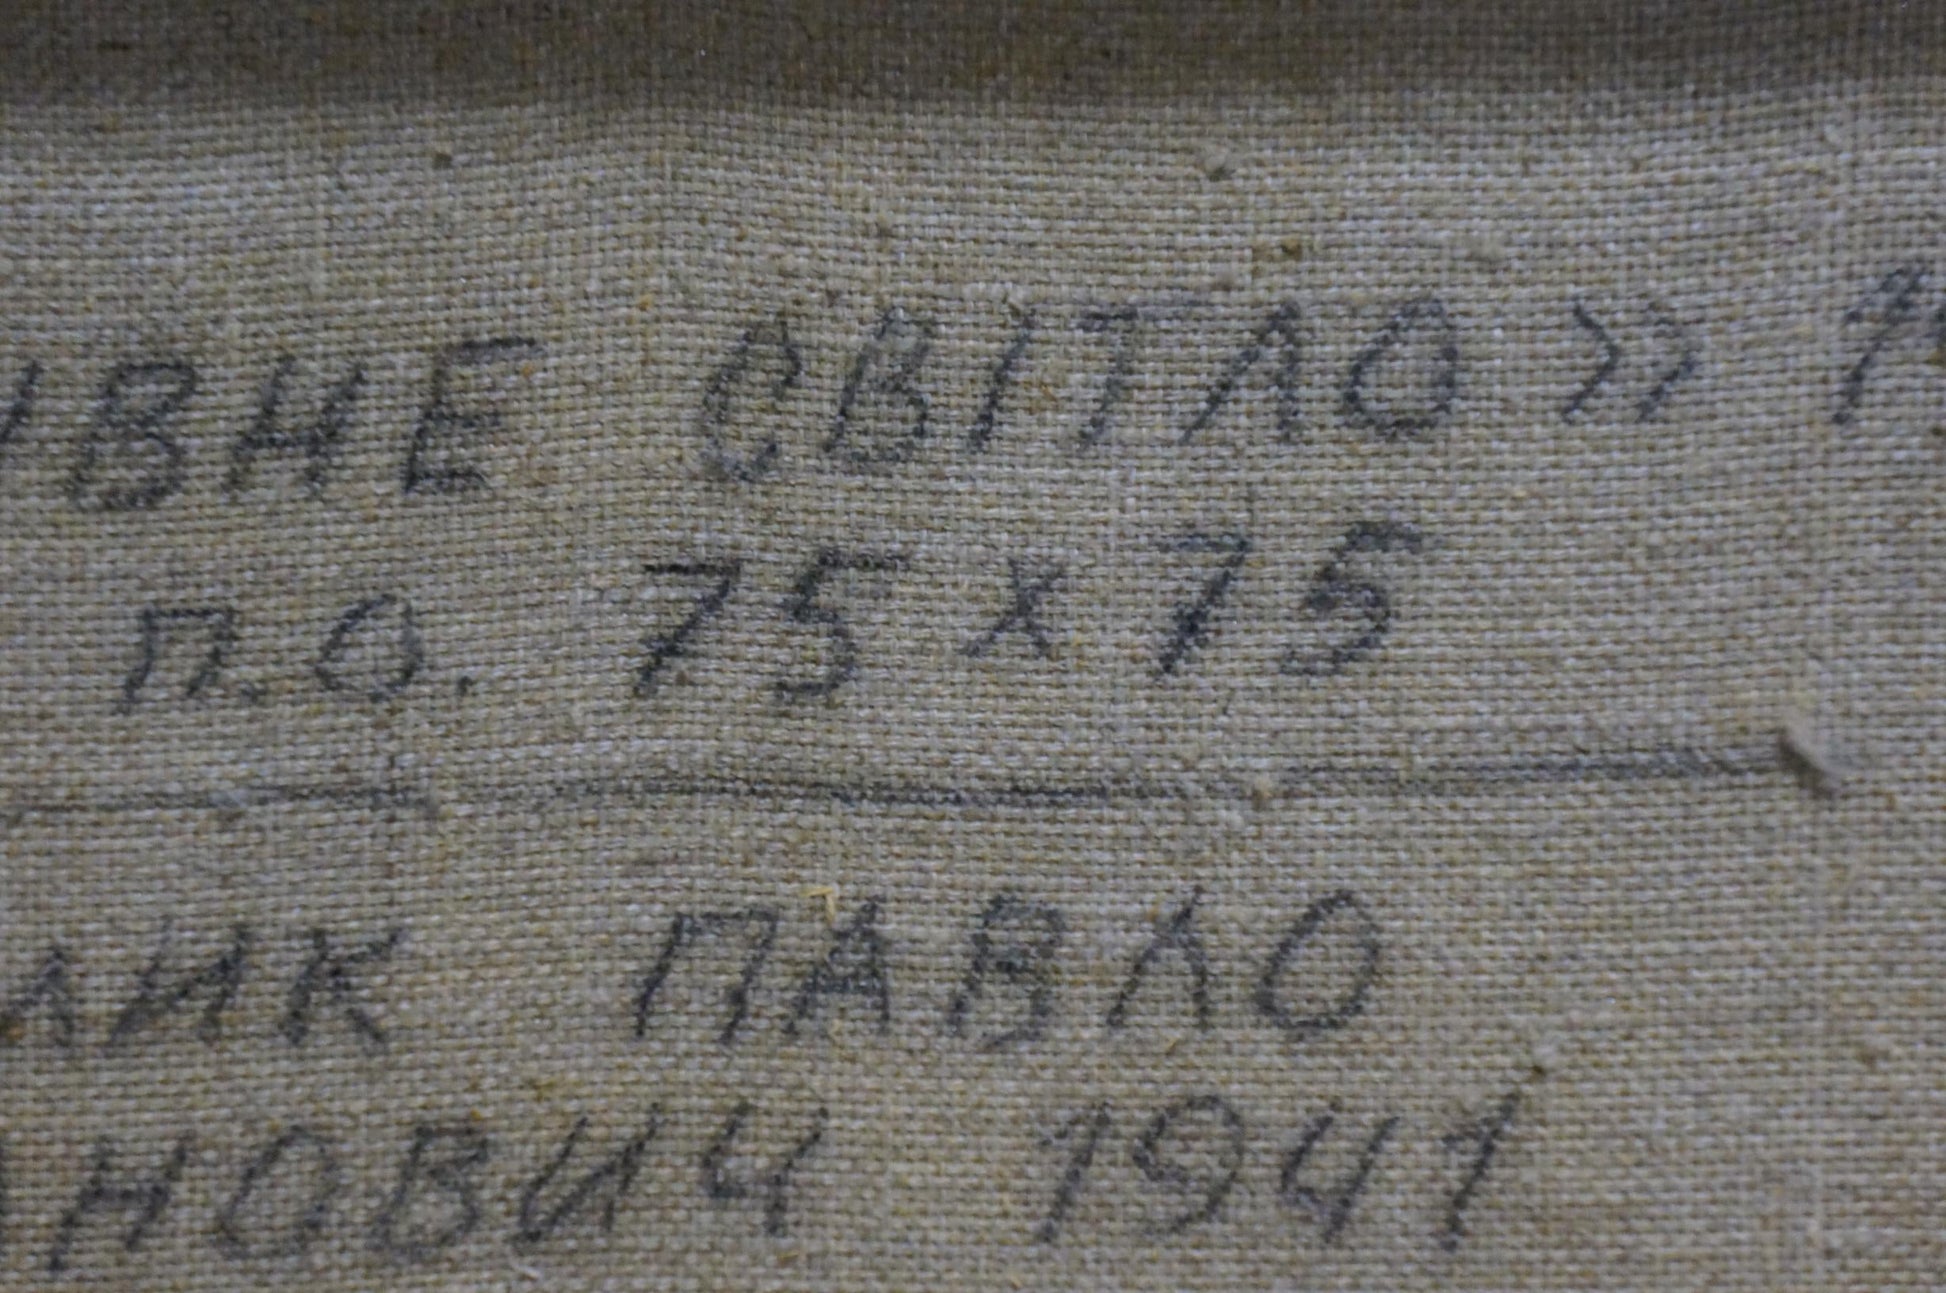 ИВНЕ СВІТЛО»
П.О. 75 x 75
ЛИК ПАВЛО
НОВИЧ 1941